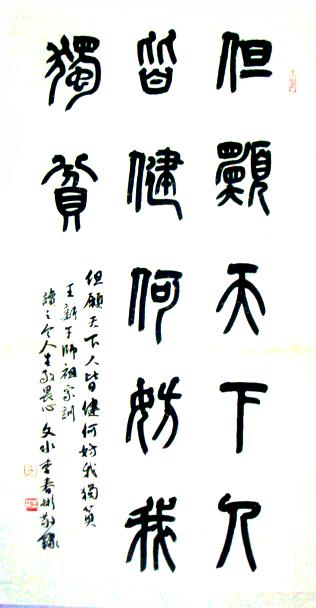 但願天下人
皆健何妨我
獨貧
但願天下人皆健何妨我獨貧
王新午師祖家訓
讀之令人生敬畏心 文水李春彬敬錄